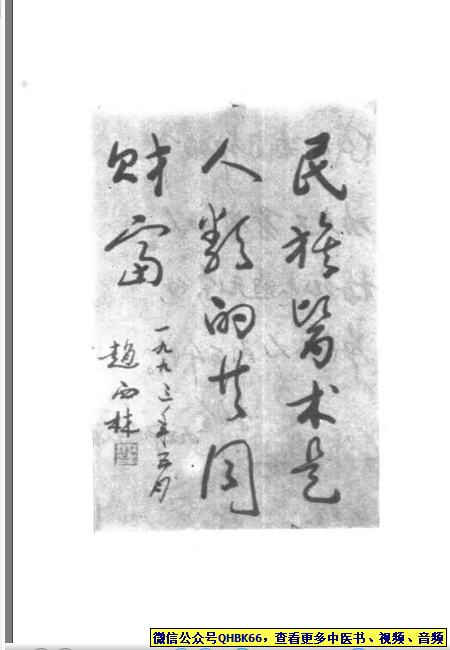 民族醫术是
人類的共同
财富
一九九三年五月
趙西林
微信公众号QHBK66，查看更多中医书、视频、音频